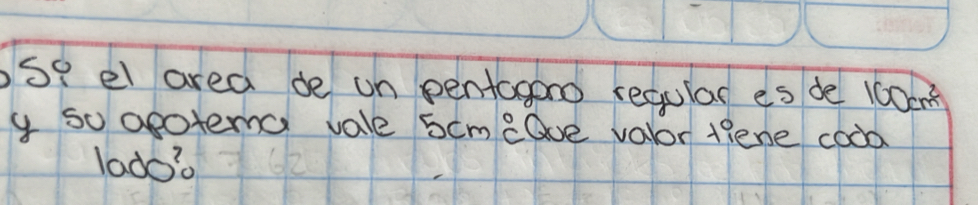 Si el area de un pentagono regular es de 100cm²
y su apotema vale 5cm ¿Que valor tiene cada
lado?